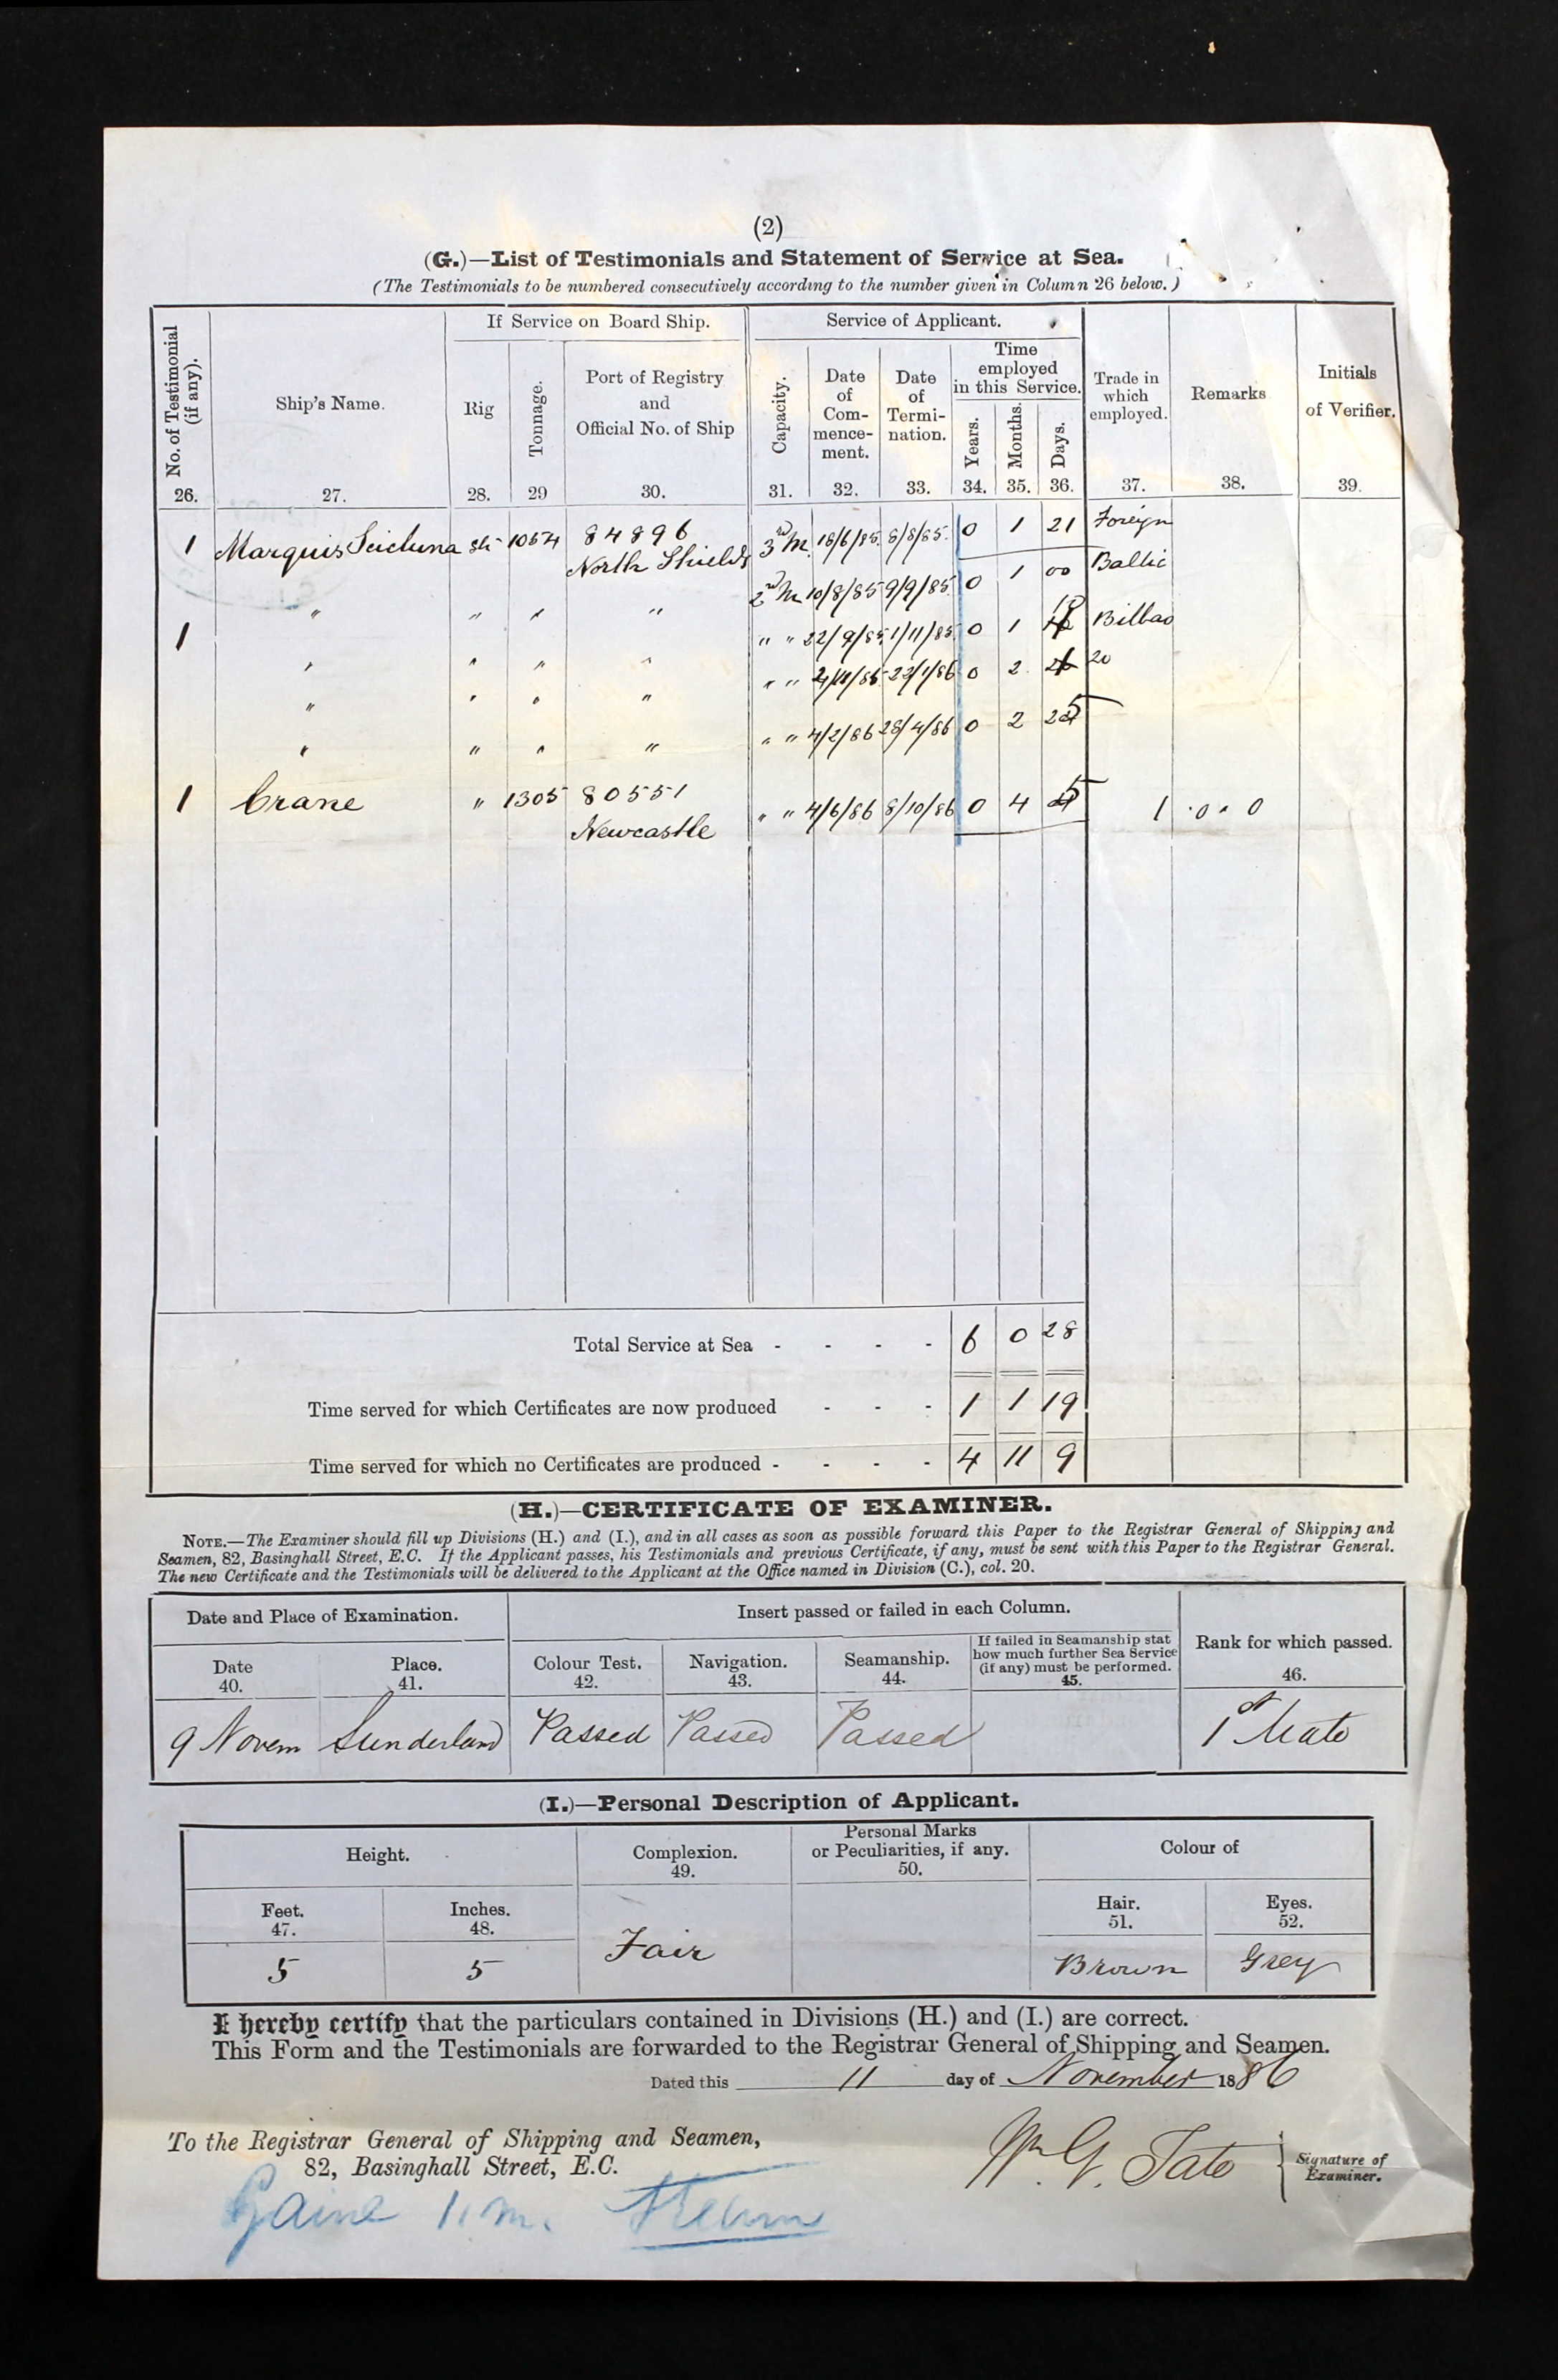 (2)
(G.)—List of Testimonials and Statement of Service at Sea.
(The Testimonials to be numbered consecutively according to the number given in Column 26 below.)
No. of Testimonial (if any). 26.
Ship's Name. 27.
If Service on Board Ship.
Rig 28.
Tonnage. 29
Port of Registry and Official No. of Ship 30.
Service of Applicant.
Capacity. 31.
Date of Commencement. 32.
Date of Termination. 33.
Time employed in this Service.
Years. 34.
Months. 35.
Days. 36.
Trade in which employed. 37.
Remarks 38.
Initials of Verifier. 39.
1 Marquis Scicluna 1054 84896 North Shields 3rd M. 18/6/85 8/8/85 0 1 21 Foreign
" " " " 2nd M 10/8/85 9/9/85 0 1 00 Baltic
1 " " " " " " 22/9/85 1/11/85 0 1 Bilbao
" " " " " " 22/1/86 0 2 20
" " " " " " 4/2/86 28/4/86 0 2 25
1 Crane " 1305 80551 Newcastle " " 4/6/86 8/10/86 0 4 5 1 . 0 . 0
Total Service at Sea - - - - 6 0 28
Time served for which Certificates are now produced - - - 1 1 19
Time served for which no Certificates are produced - - - - 4 11 9
(H.)—CERTIFICATE OF EXAMINER.
NOTE.—The Examiner should fill up Divisions (H.) and (I.), and in all cases as soon as possible forward this Paper to the Registrar General of Shipping and
Seamen, 82, Basinghall Street, E.C. If the Applicant passes, his Testimonials and previous Certificate, if any, must be sent with this Paper to the Registrar General.
The new Certificate and the Testimonials will be delivered to the Applicant at the Office named in Division (C.), col. 20.
Date and Place of Examination.
Insert passed or failed in each Column.
Date 40.
Place. 41.
Colour Test. 42.
Navigation. 43.
Seamanship. 44.
If failed in Seamanship stat how much further Sea Service (if any) must be performed. 45.
Rank for which passed. 46.
9 Novem Sunderland Passed Passed Passed 1st Mate
(I.)—Personal Description of Applicant.
Height.
Complexion. 49.
Personal Marks or Peculiarities, if any. 50.
Colour of
Feet. 47.
Inches. 48.
Hair. 51.
Eyes. 52.
5 5 Fair Brown Grey
I hereby certify that the particulars contained in Divisions (H.) and (I.) are correct.
This Form and the Testimonials are forwarded to the Registrar General of Shipping and Seamen.
Dated this 11 day of November 1886
To the Registrar General of Shipping and Seamen,
82, Basinghall Street, E.C.
Wm G. Tate
Signature of Examiner.
1. m.